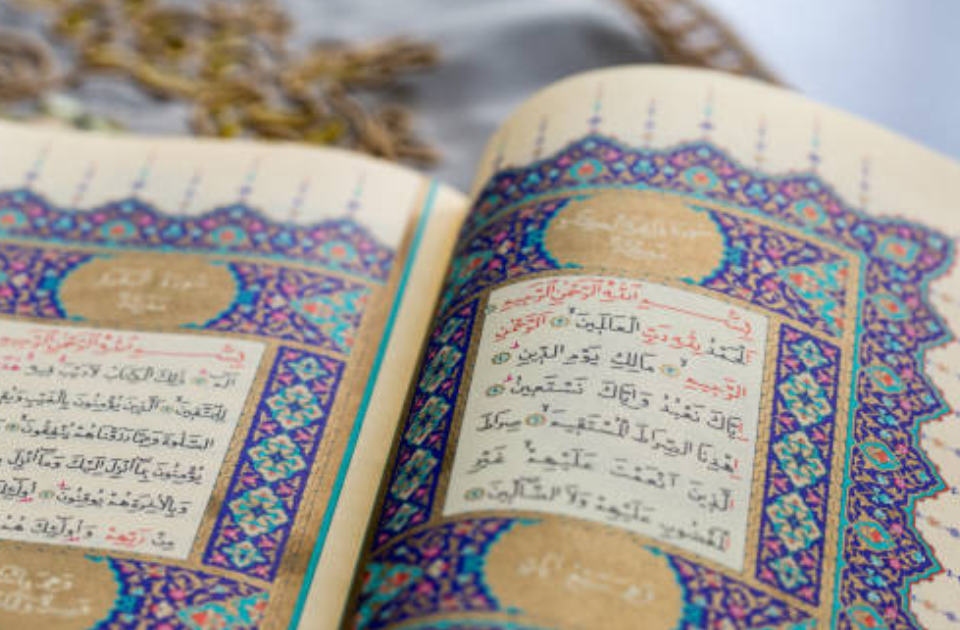 سورة الفاتحة
بسم الله الرحمن الرحيم
اَلْحَمْدُ لِلّٰهِ رَبِّ الْعَالَمٖينَ اَلرَّحْمٰنِ
الرَّحٖيمِ مَالِكِ يَوْمِ الدّٖينِ
اِيَّاكَ نَعْبُدُ وَاِيَّاكَ نَسْتَعٖينُ
اِهْدِنَا الصِّرَاطَ الْمُسْتَقٖيمَ صِرَاطَ
الَّذٖينَ اَنْعَمْتَ عَلَيْهِمْ غَيْرِ
الْمَغْضُوبِ عَلَيْهِمْ وَلَا الضَّٓالّٖينَ
سورة البقرة
بسم الله الرحمن الرحيم
الٓمٓ ذٰلِكَ الْكِتَابُ لَا رَيْبَ فٖيهِ
لِلْمُتَّقٖينَ اَلَّذٖينَ يُؤْمِنُونَ بِالْغَيْبِ
الصَّلٰوةَ وَمِمَّا رَزَقْنَاهُمْ يُنْفِقُونَ
يُؤْمِنُونَ بِمَٓا اُنْزِلَ اِلَيْكَ وَمَٓا اُنْزِلَ
وَبِالْاٰخِرَةِ هُمْ يُوقِنُونَ اُولٰٓئِكَ
مِنْ رَبِّهِمْ وَاُولٰٓئِكَ هُمُ